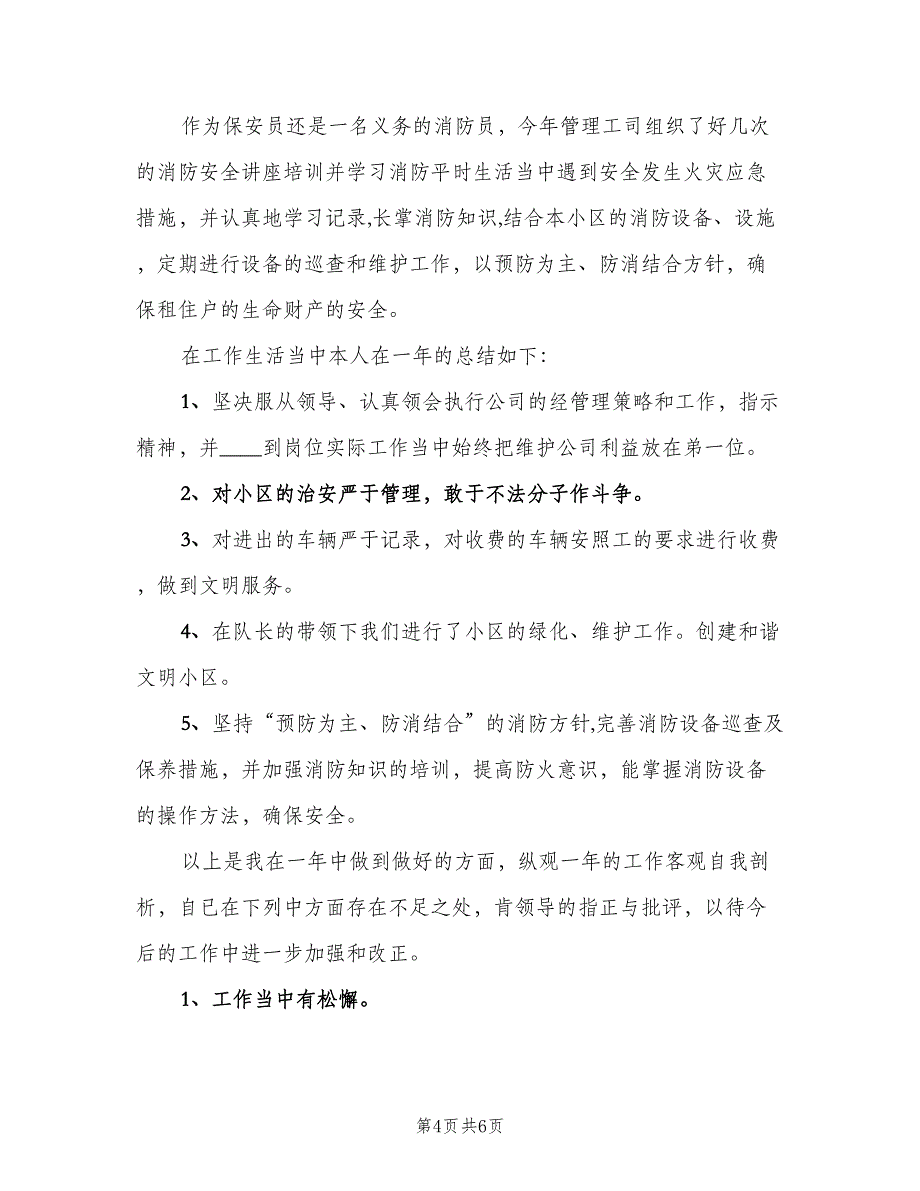 作为保安员还是一名义务的消防员，今年管理工司组织了好几次
的消防安全讲座培训并学习消防平时生活当中遇到安全发生火灾应急
措施，并认真地学习记录,长掌消防知识,结合本小区的消防设备、设施
，定期进行设备的巡查和维护工作，以预防为主、防消结合方针，确
保租住户的生命财产的安全。
在工作生活当中本人在一年的总结如下：
1、坚决服从领导、认真领会执行公司的经管理策略和工作，指示
精神，并____到岗位实际工作当中始终把维护公司利益放在弟一位。
2、对小区的治安严于管理，敢于不法分子作斗争。
3、对进出的车辆严于记录，对收费的车辆安照工的要求进行收费
，做到文明服务。
4、在队长的带领下我们进行了小区的绿化、维护工作。创建和谐
文明小区。
5、坚持“预防为主、防消结合”的消防方针,完善消防设备巡查及
保养措施，并加强消防知识的培训，提高防火意识，能掌握消防设备
的操作方法，确保安全。
以上是我在一年中做到做好的方面，纵观一年的工作客观自我剖
析，自已在下列中方面存在不足之处，肯领导的指正与批评，以待今
后的工作中进一步加强和改正。
1、工作当中有松懈。
第4页 共6页